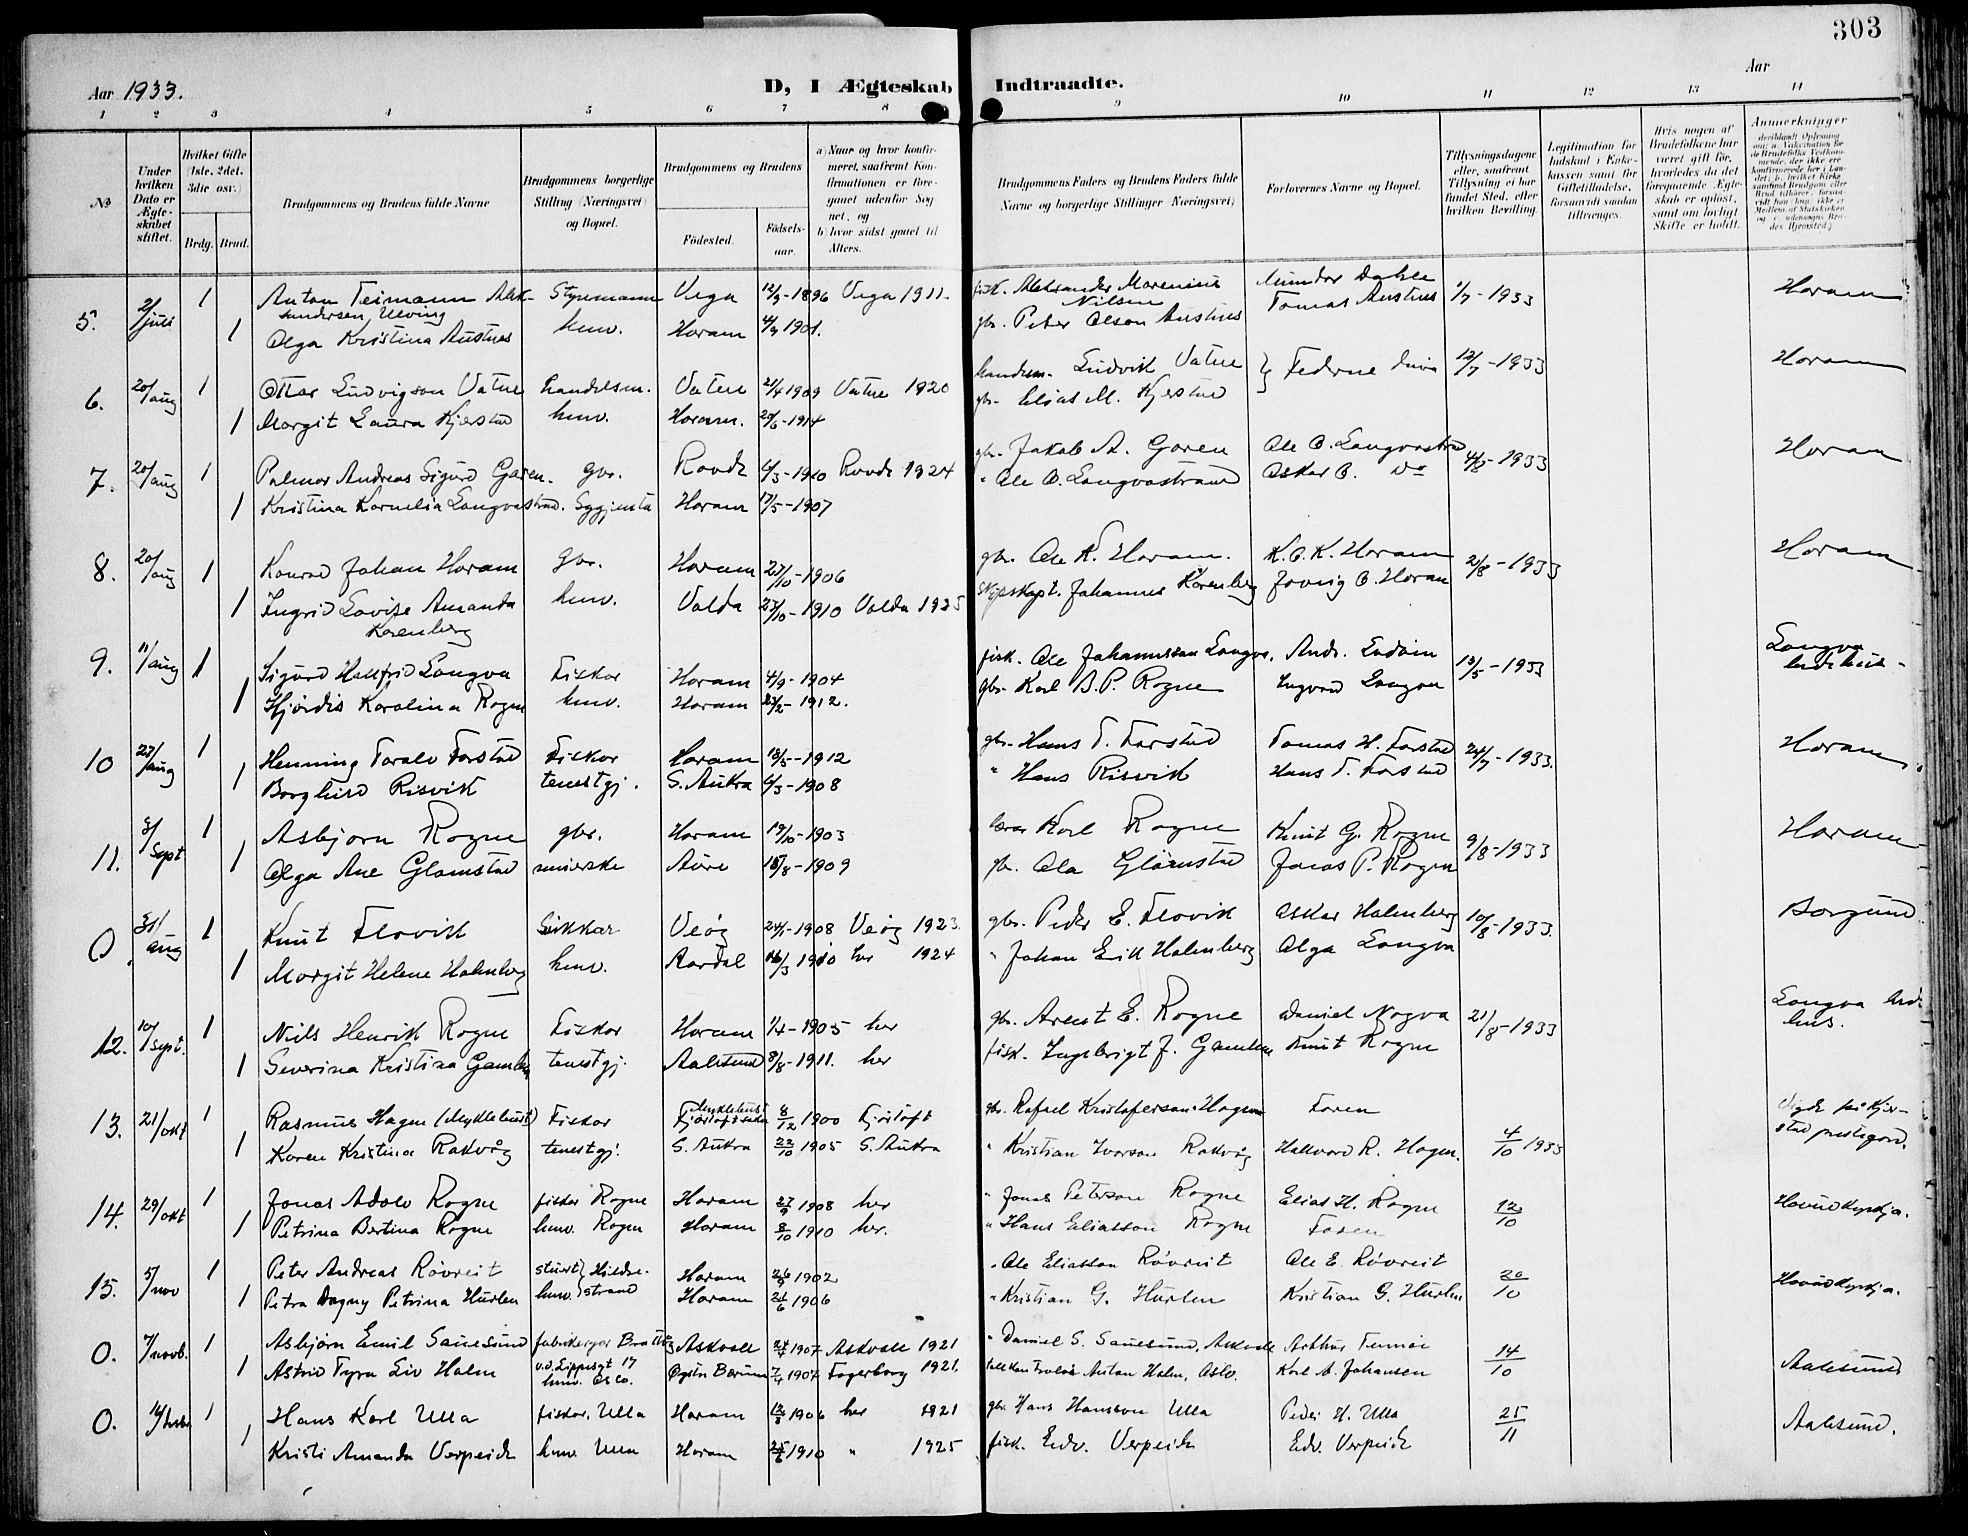 303
Aar 1933.
D, I Ægteskab Indtraadte.
Aar
1 2 3 4 5 6 7 8 9 10 11 12 13 14
No
Under hvilken Dato er Ægteskabet stiftet.
Hvilket Gifte (1ste, 2det, 3die osv.)
Brdg. Brud.
Brudgommens og Brudens fulde Navne
Brudgommens borgerlige Stilling (Næringsvei) og Bopæl.
Brudgommens og Brudens
Fødested.
Fødselsaar.
a) Naar og hvor konfirmeret, saafremt Konfirmationen er foregaaet udenfor Sognet, og
b) hvor sidst gaaet til Alters.
Brudgommens Faders og Brudens Faders fulde Navne og borgerlige Stillinger (Næringsvei)
Forlovernes Navne og Bopæl.
Tillysningsdagene eller, saafremt Tillysning ei har fundet Sted, efter hvilken Bevilling.
Legitimation for Indskud i Enkekassen samt for Giftetilladelse, forsaavidt saadan tiltrænges.
Hvis nogen af Brudefolkene har været gift før, hvorledes da det foregaaende Ægteskab er opløst, samt om lovligt Skifte er holdt.
Anmerkninger
5. 2/juli 1 Anton Teimann Alek- Styrmann Vega 12/9-1896 Vega 1911. fisk. Aleksander Marenius Nilsen Tomas Austnes 1/7-1933 Haram
sandersen, Ulving
1 Olga Kristina Austnes husv. Haram 4/9 1901. gbr. Peter Olson Austnes
6. 20/aug 1 Ottar Ludvigson Vatne handelsm. Vatne 2/4 1909 Vatne 1920 handelsm. Ludvik Vatne } Fedrane 12/7-1933 Haram
1 Margit Laura Kjerstad husv. Haram. 20/6-1914 gbr. Elias M. Kjerstad
7. 20/aug 1 Palmar Andreas Sigurd Garen. gbr. Rovde 6/3-1910 Rovde 1924 gbr. Jakob A. Garen Ole O. Longvastrand 4/8-1933 Haram
1 Kristina Kornelia Longvastrand. Haram 17/5-1907 " Ole O. Longvastrand Oskar O. do
8. 20/aug 1 Konrad Johan Haram gbr. Haram 27/10-1906 gbr. Ole K. Haram. K. O. K. Haram 2/8-1933 Haram
1 Ingrid Lovise Amanda husv. Volda 27/10-1910 Volda 1925 Skipskapt. Johannes Korenberg O. Haram
Korenberg
9. 11/aug 1 Sigurd Hallfrid Longva Fiskar Haram 4/9-1904 fisk. Ole Johannesson Longva. Andr. 13/5-1933 Longva bedehus-
1 Hjördis Karolina Rogne husv. Haram 23/2-1912. gbr. Karl B. P. Rogne Ingvard Longva
10 27/aug 1 Henning Toralv Farstad Fiskar Haram 18/5-1912 gbr. Hans T. Farstad Tomas H. Farstad 24/7-1933. Haram
1 Borghild Risvik tenestgj. S. Aukra 6/3-1908 " Hans Risvik Hans T. Farstad
11. 3/sept 1 Asbjørn Rogne gbr. Haram 19/10-1903 lærar Karl Rogne Knut G. Rogne 9/8-1933 Haram
1 Olga Ane Glamstad meierske Aure 18/8-1909 gbr. Ola Glämstad Jonas P. Rogne
0. 31/aug 1 Knut Flovik Veøy 24/1-1908 Veøy 1923 gbr. Peder E. Flovik Oskar Halmberg 10/8-1933. Borgund
1 Margit Helene Halmberg husv. Aardal 16/3 1910 her 1924 " Johan Erik Halmberg Olga Longva
12. 10/sept. 1 Nils Henrik Rogne Fiskar Haram 1/4-1905 her gbr. Arent E. Rogne Daniel Nogva 21/8-1933 Longva bedehus.
1 Severina Kristina Gamlem tenestgj. Aalesund 8/8-1911. her fisk. Ingebrigt J. Gamlem Knut Rogne
13. 21/okt 1 Rasmus Hagen (Myklebust) Fiskar Myklebust Fjørtoft sokn 8/12 1900 Fjørtoft gbr. Rafael Kristoferson Hagen Faren 4/10 1933 Vigde på Kjerstad prestegard.
1 Karen Kristina Rakvåg tenestgj. S. Aukra 22/10 1905 S. Aukra " Kristian Ivarson Rakvåg Hallvard R. Hagen.
14. 29/okt 1 Jonas Adolv Rogne fiskar Rogne Haram 27/9 1908 her " Jonas Peterson Rogne Elias H. Rogne 12/10 Hovudkyrkja.
1 Petrina Bertina Rogne husv. Rogne Haram 8/10 1910 her. " Hans Eliasson Rogne Faren
15. 5/nov 1 Peter Andreas Røvreit stuert } Hildre- Haram 26/9 1902 " Ole Eliasson Røvreit Ole E. Røvreit 20/10 Hovudkyrkja.
1 Petra Dagny Petrina Hurlen husv. } strand Haram 24/6 1906 " Kristian G. Hurlen Kristian G. Hurlen
0. 7/novb. 1 Asbjørn Emil Sauesund Askvoll 24/7 1907 Askvoll 1921 " Daniel S. Sauesund, Askvoll Arthur 14/10 Aalesund
1 Astrid Tyra Liv Halm husv. Oslo. Bærum 7/4 1907 Fagerborg 1921. Anton Halm, Oslo. Karl A. Johansen
0. 1 Hans Karl Ulla fiskar, Ulla Haram 1906 her 1921 gbr. Hans Hansson Ulla Peder H. Ulla 25/11 Aalesund.
1 Kristi Amanda Verpeide husv. Ulla Haram 25/6 1910 " 1925 fisk. Edv. Verpeide Edv. Verpeide